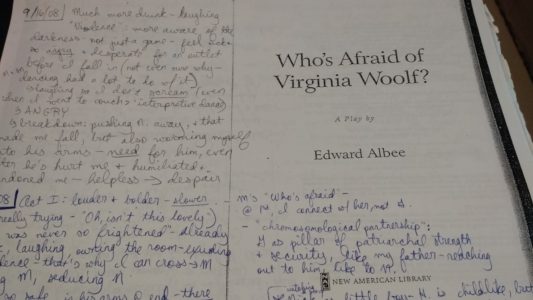 9/16/08 Much more drunk - laughing
"Violence": more aware, of the
darkness - not just a game - feel sick -
so angry + desperate for an outlet
before I fall in (not even sure why -
dancing had a lot to do w/ it)
laughing so I don't scream (even
when I went to couch: interpretive dance)
↳ ANGRY
↳ breakdown: pushing N. away, + that
made me fall, but also worming myself
to his arms - need for him, even
he's hurt me + humiliated +
me - helpless → despair
08 Act I: louder + bolder - slower
really trying - "Oh, isn't this lovely)
was never so frightened" - already
laughing, owning the room - exuding
that's why I can cross → M
M, seducing N
in his arms @ end - there
Who's Afraid of
Virginia Woolf?
A Play by
Edward Albee
M's "Who's afraid" -
@ N, I connect w/ her, not
- "chromosomological partnership":
as pillar of patriarchal strength
+ security, like my father - reaching
out to him, like to N,
NEW AMERICAN LIBRARY
little boy - H is childlike, but